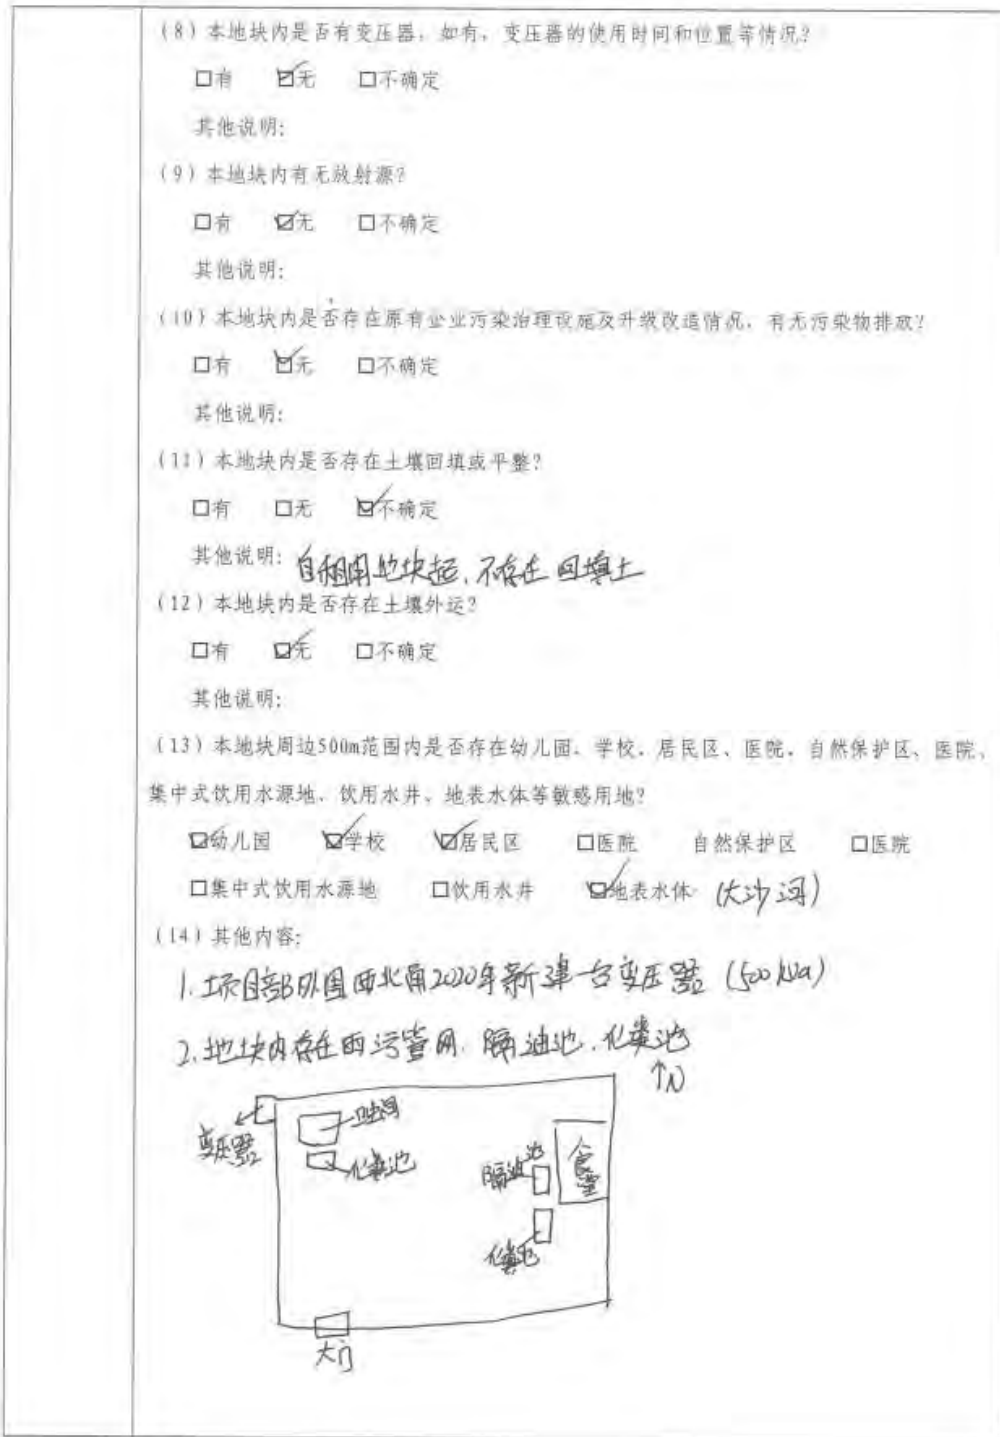 (8)本地块内是否有变压器，如有，变压器的使用时间和位置等情况？
□有 ☑无 □不确定
其他说明：
(9)本地块内有无放射源？
□有 ☑无 □不确定
其他说明：
(10)本地块内是否存在原有企业污染治理设施及升级改造情况，有无污染物排放？
□有 ☑无 □不确定
其他说明：
(11)本地块内是否存在土壤回填或平整？
□有 □无 ☑不确定
其他说明：自租用地块起，不存在回填土
(12)本地块内是否存在土壤外运？
□有 ☑无 □不确定
其他说明：
(13)本地块周边500m范围内是否存在幼儿园、学校、居民区、医院、自然保护区、医院、
集中式饮用水源地、饮用水井、地表水体等敏感用地？
☑幼儿园 ☑学校 ☑居民区 □医院 自然保护区 □医院
□集中式饮用水源地 □饮用水井 ☑地表水体 (大沙河)
(14)其他内容：
1.项目部外围西北角2020年新建一台变压器 (500kVa)
2.地块内存在雨污管网、隔油池、化粪池
↑N
变压器
化粪池
隔油池
食堂
化粪池
大门